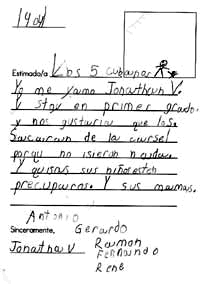 Estimado/a Los 5 cubanos
Yo me yamo Jonathan V.
Y stoy en primer grado.
y nos gustaria que los.
Sacaran de la carsel
porqu no isieron nada.
Y quisas sus niños esten
precupauros. Y sus mamas.
Antonio
Sinceramente, Gerardo
Jonathan V Ramon
Fernando
Rene